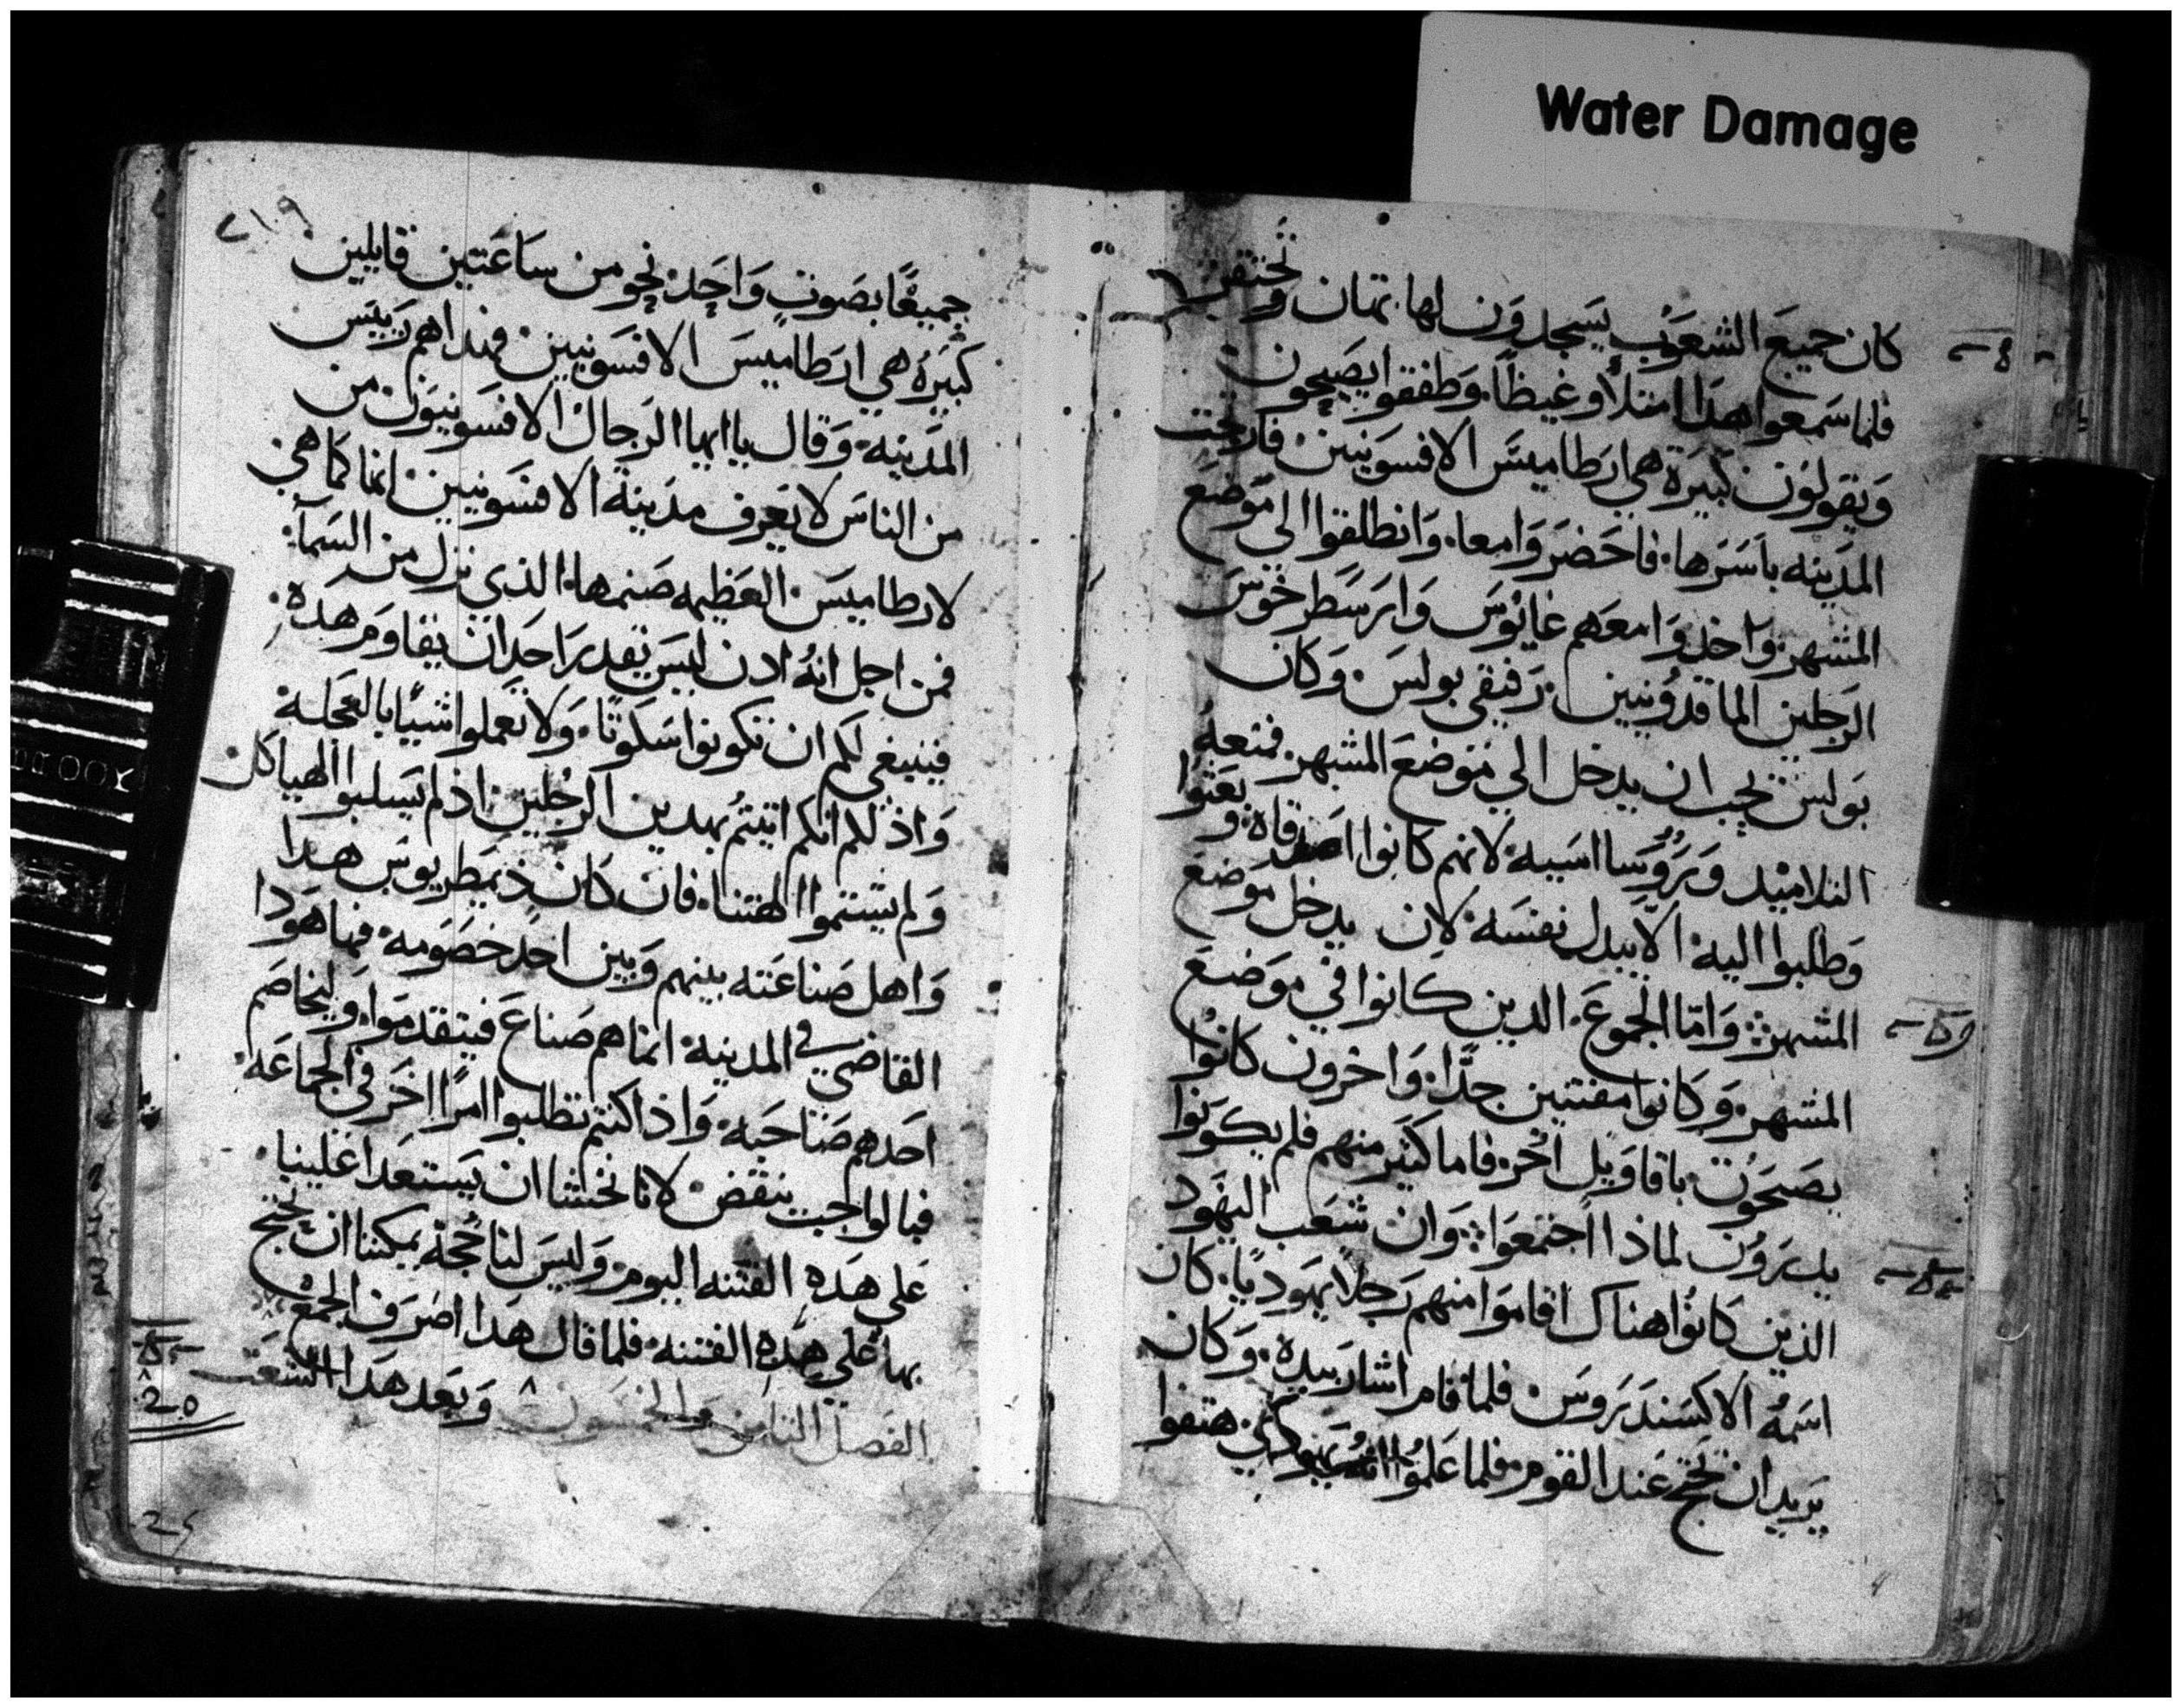 Water Damage
كان جميع الشعوب يسجدون لها تهان وتحتقر
فلما سمعوا هدا امتلأوا غيظاً وطفقوا يصيحون
ويقولون كبيرة هي ارطاميس الافسونيين فارتجت
المدينه باسرها فاحضروا معا وانطلقوا الي موضع
المشهر واخدوا معهم غايوس وارسطرخوس
الرجلين الماقدونيين رفيقي بولس وكان
بولس يحب ان يدخل الي موضع المشهر فمنعه
التلاميد وروسا اسيه لانهم كانوا اصدقاه وبعثوا
وطلبوا اليه الا يبدل نفسه لان يدخل موضع
المشهر واما الجموع الدين كانوا في موضع
المشهر وكانوا مفتتين جدًا واخرون كانوا
يصحون باقاويل اخر فاما كثير منهم فلم يكونوا
يدرون لماذا اجتمعوا وان شعب اليهود
الذين كانوا هناك اقاموا منهم رجلاً يهوديًا كان
اسمه الاكسندروس فلما قام اشار بيده وكان
يريد ان يحتج عند القوم فلما علموا انه يهودي هتفوا
٢١٩
جميعًا بصوت واحد نحو من ساعتين قايلين
كبيره هي ارطاميس الافسونيين فهداهم رييس
المدينه وقال يا ايها الرجال الافسونيون من
من الناس لا يعرف مدينة الافسونيين انها كاهي
لارطاميس العظيمه صنمها الذي نزل من السمآ
فمن اجل انه ادن ليس يقدر احد ان يقاوم هده
فينبغي لكم ان تكونوا سكوتًا ولا تعملوا شييًا بالعجلة
واذ لكم انكم اتيتم بهدين الرجلين اذ لم يسلبوا الهياكل
ولم يشتموا الهتنا فان كان ذيمطريوس هدا
واهل صناعته بينهم وبين احد خصومه فها هودا
القاضي في المدينه انما هم صناع فيتقدموا وليخاصم
احدهم صاحبه واذا كنتم تطلبوا امرًا اخر في الجماعه
فبالواجب ينقض لانا نخشا ان يستعدا علينا
علي هده الفتنه اليوم وليس لنا حجة يمكننا ان نحتج
بها علي هده الفتنه فلما قال هدا اصرف الجمع
الفصل الثامن والخمسون وبعد هدا الشغب
20